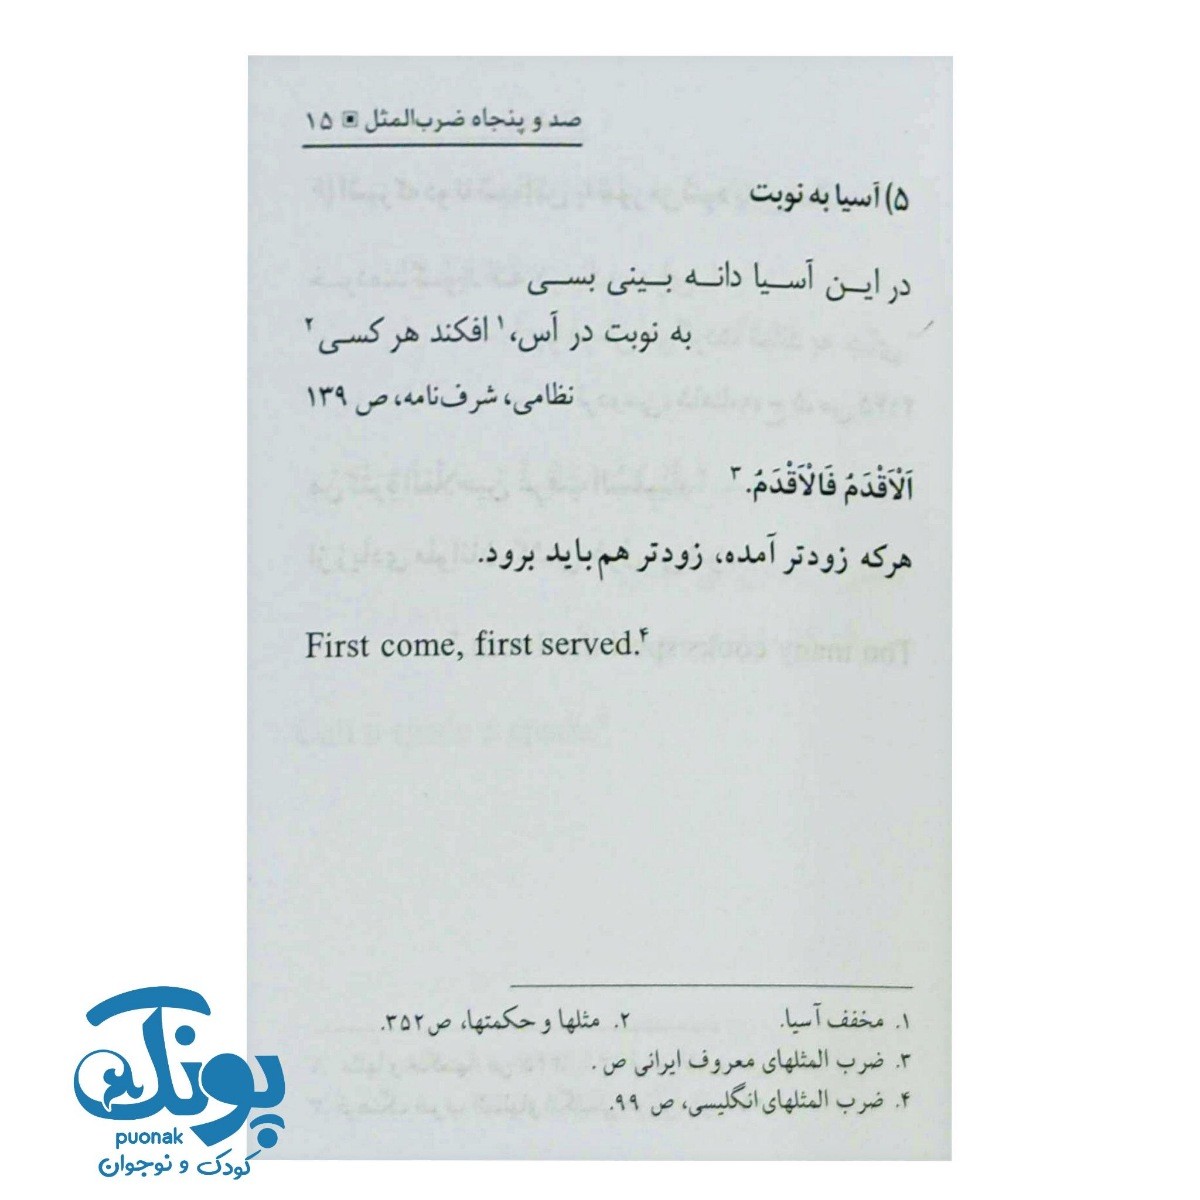 صد و پنجاه ضرب‌المثل ▣ ۱۵
۵) آسیا به نوبت
در ایـن آسـیا دانـه بـینی بسـی
به نوبت در آس،۱ افکند هر کسـی۲
نظامی، شرف‌نامه، ص ۱۳۹
اَلْاَقْدَمُ فَالْاَقْدَمُ.۳
هرکه زودتر آمده، زودتر هم باید برود.
First come, first served.۴
۱. مخفف آسیا. ۲. مثلها و حکمتها، ص۳۵۲.
۳. ضرب المثلهای معروف ایرانی ص .
۴. ضرب المثلهای انگلیسی، ص ۹۹.
پونک
puonak
کودک و نوجوان